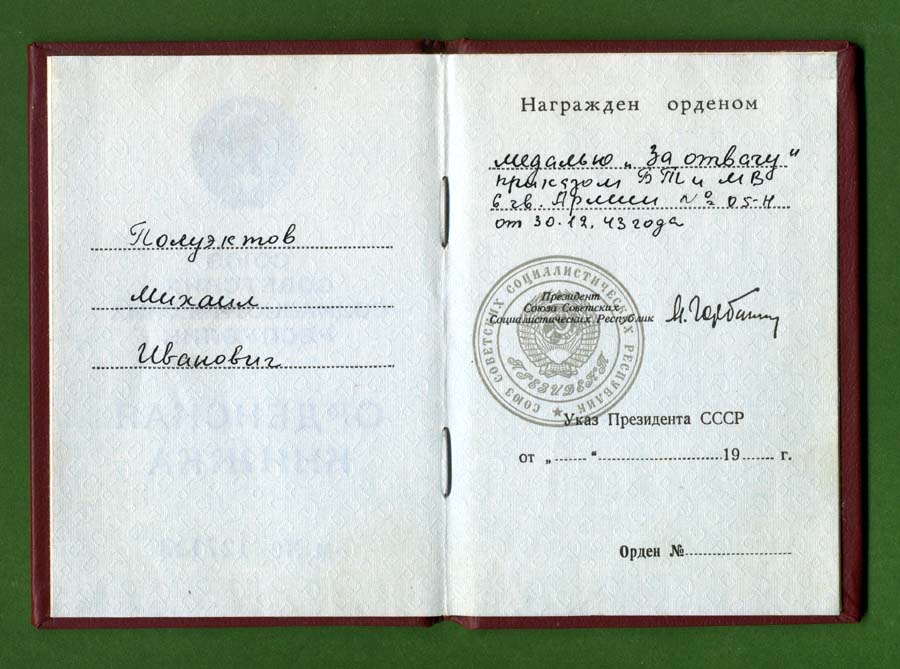 Полуэктов
Михаил
Иванович
Награжден орденом
медалью „За отвагу“
приказом БТ и МВ
6 гв. Армии № 05-Н
от 30.12.43 года
Президент
Союза Советских
Социалистических Республик
М. Горбачев
СОЮЗ СОВЕТСКИХ СОЦИАЛИСТИЧЕСКИХ РЕСПУБЛИК
ПРЕЗИДЕНТ
Указ Президента СССР
от „ “ 19 г.
Орден №